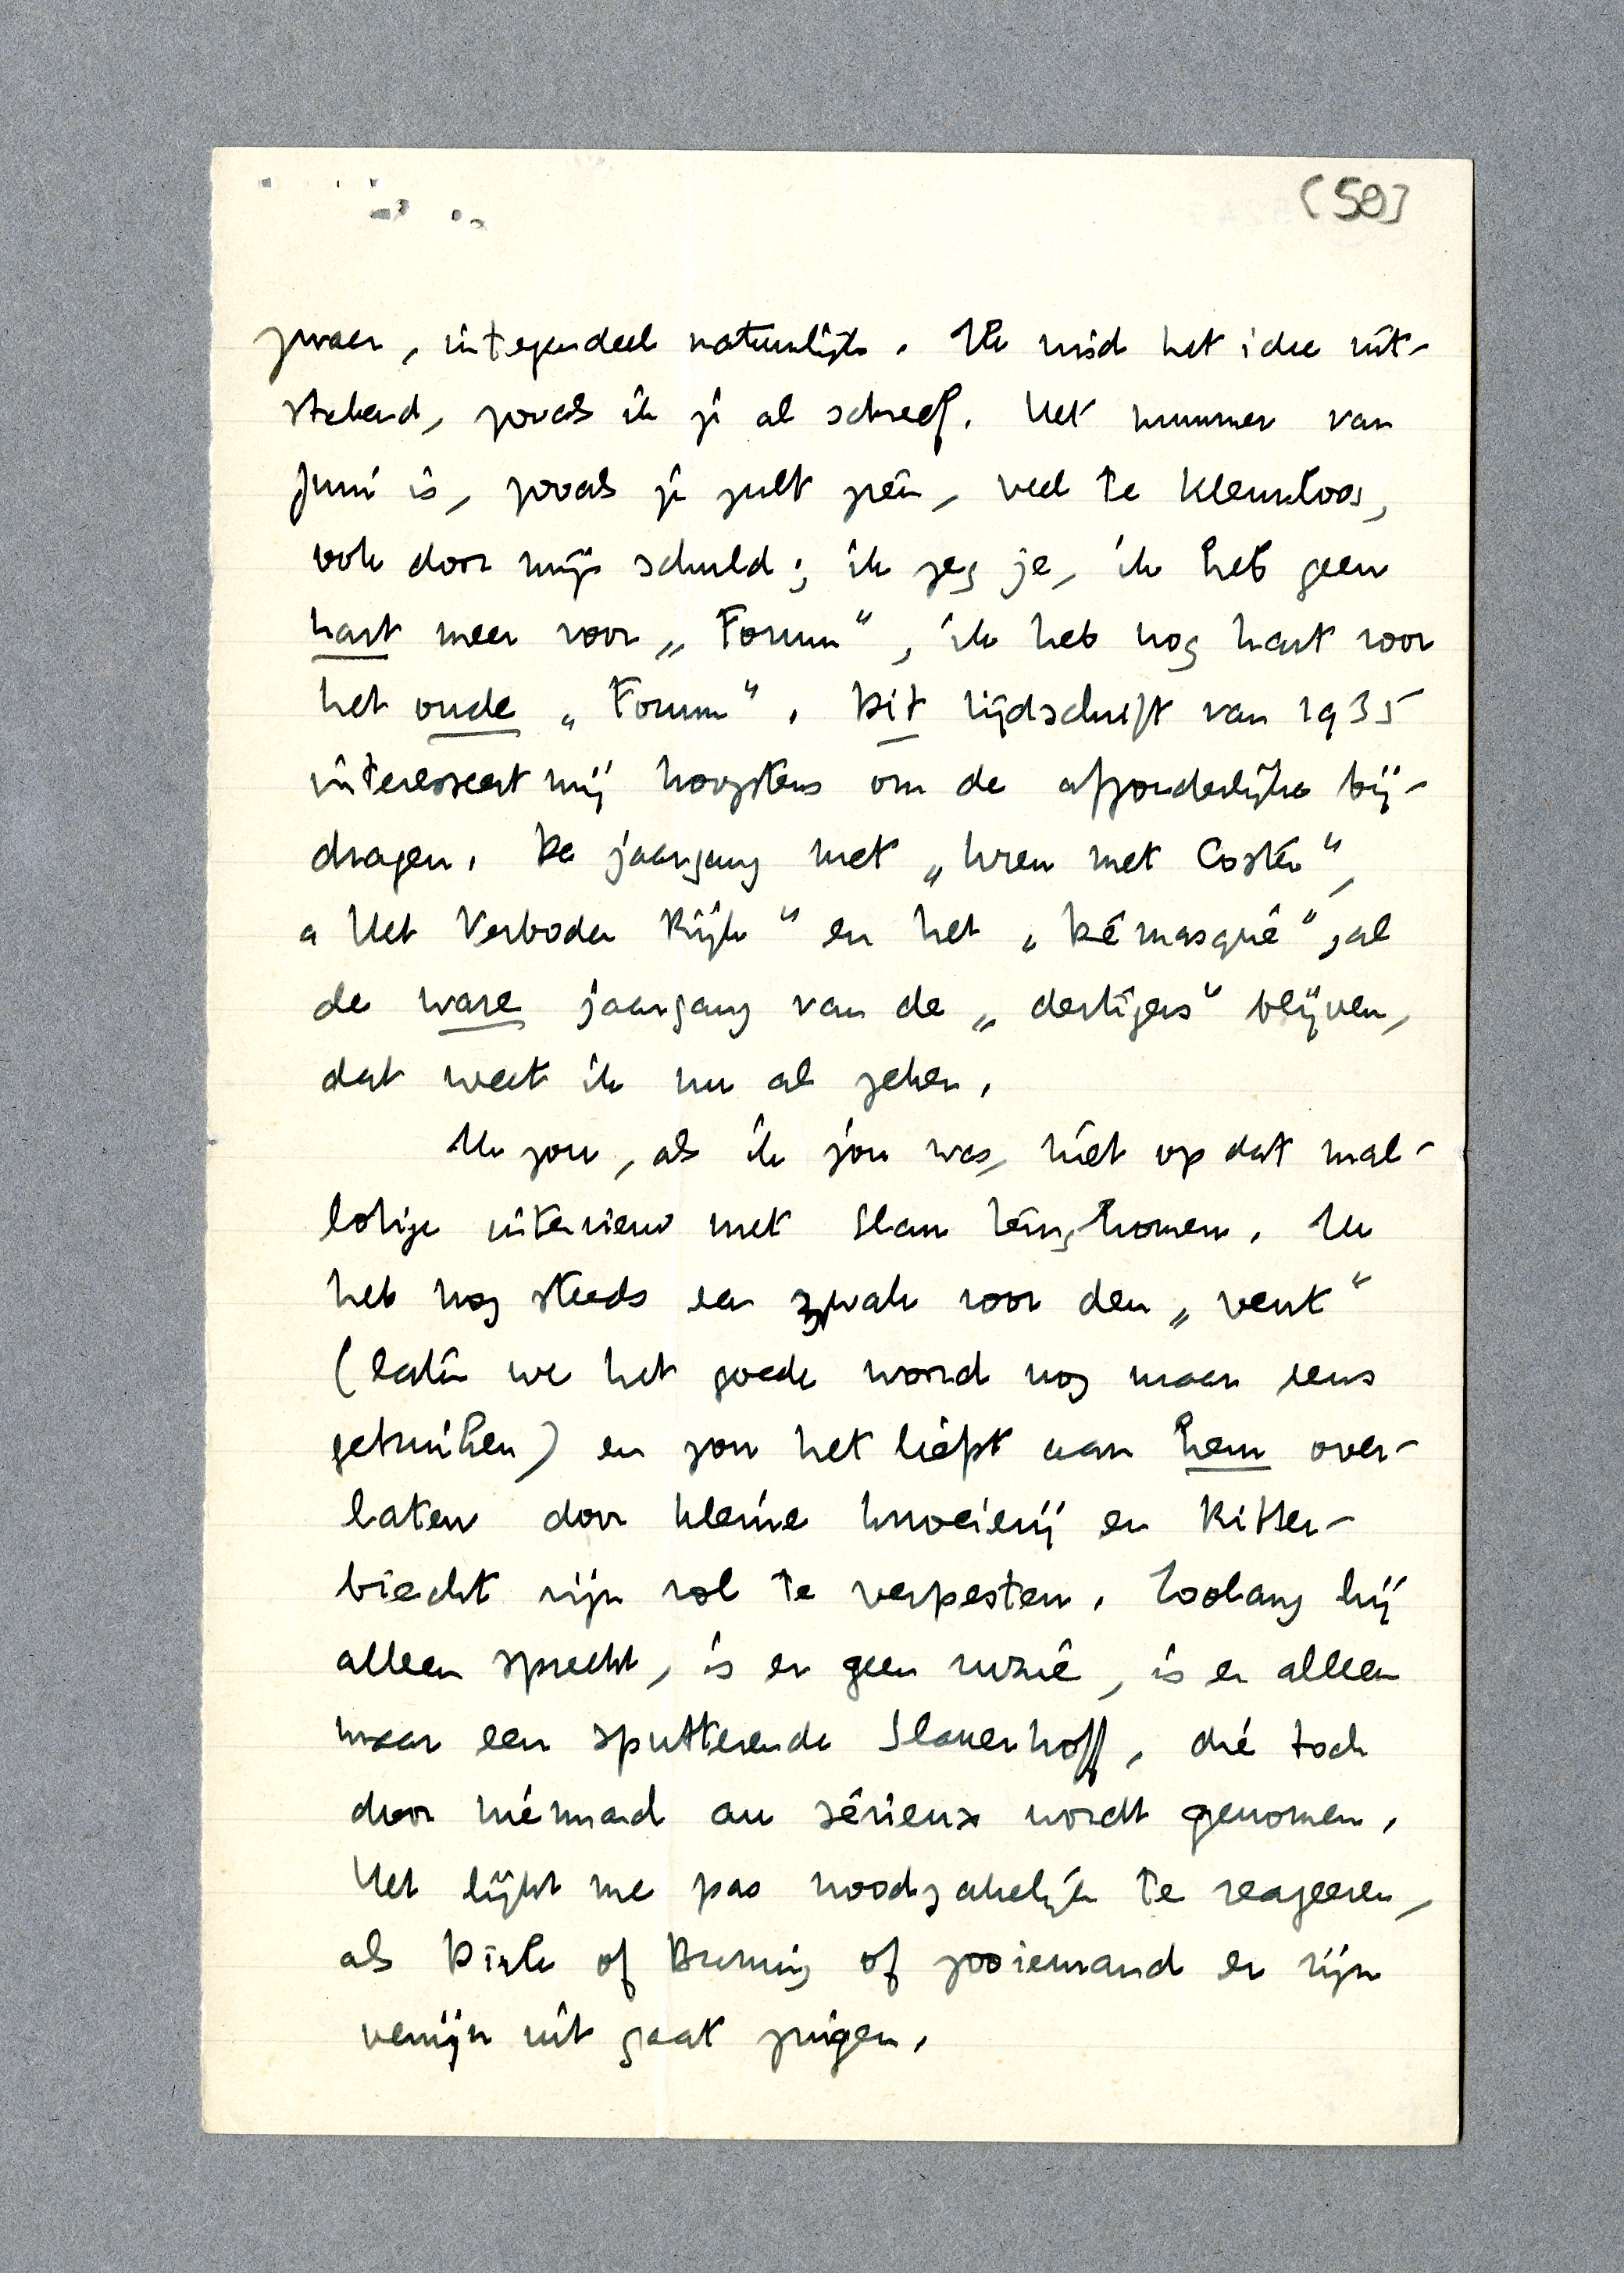 (50)
zwaar, integendeel natuurlijk. Ik vind het idee uit-
stekend, zooals ik je al schreef. Het nummer van
Juni is, zooals je zult zien, veel te kleurloos,
ook door mijn schuld; ik zeg je, ik heb geen
hart meer voor „Forum“, ik heb nog hart voor
het oude „Forum“. Dit tijdschrift van 1935
interesseert mij hoogstens om de afzonderlijke bij-
dragen. De jaargang met „Uren met Coster“,
„Het Verboden Rijk“ en het „Démasqué“ zal
de ware jaargang van de „dertigers“ blijven,
dat weet ik nu al zeker.
Ik zou, als ik jou was, niet op dat mal-
lotige interview met Slau terugkomen. Ik
heb nog steeds een zwak voor den „vent“
(laten we het goede woord nog maar eens
gebruiken) en zou het liefst aan hem over-
laten door kleine knoeierij en Ritter-
biecht zijn rol te verpesten. Zoolang hij
alleen spreekt, is er geen ruzie, is er alleen
maar een sputterende Slauerhoff, die toch
door niemand au sérieux wordt genomen.
Het lijkt me pas noodzakelijk te reageeren,
als Dirk of Bruning of zooiemand er zijn
venijn uit gaat zuigen.